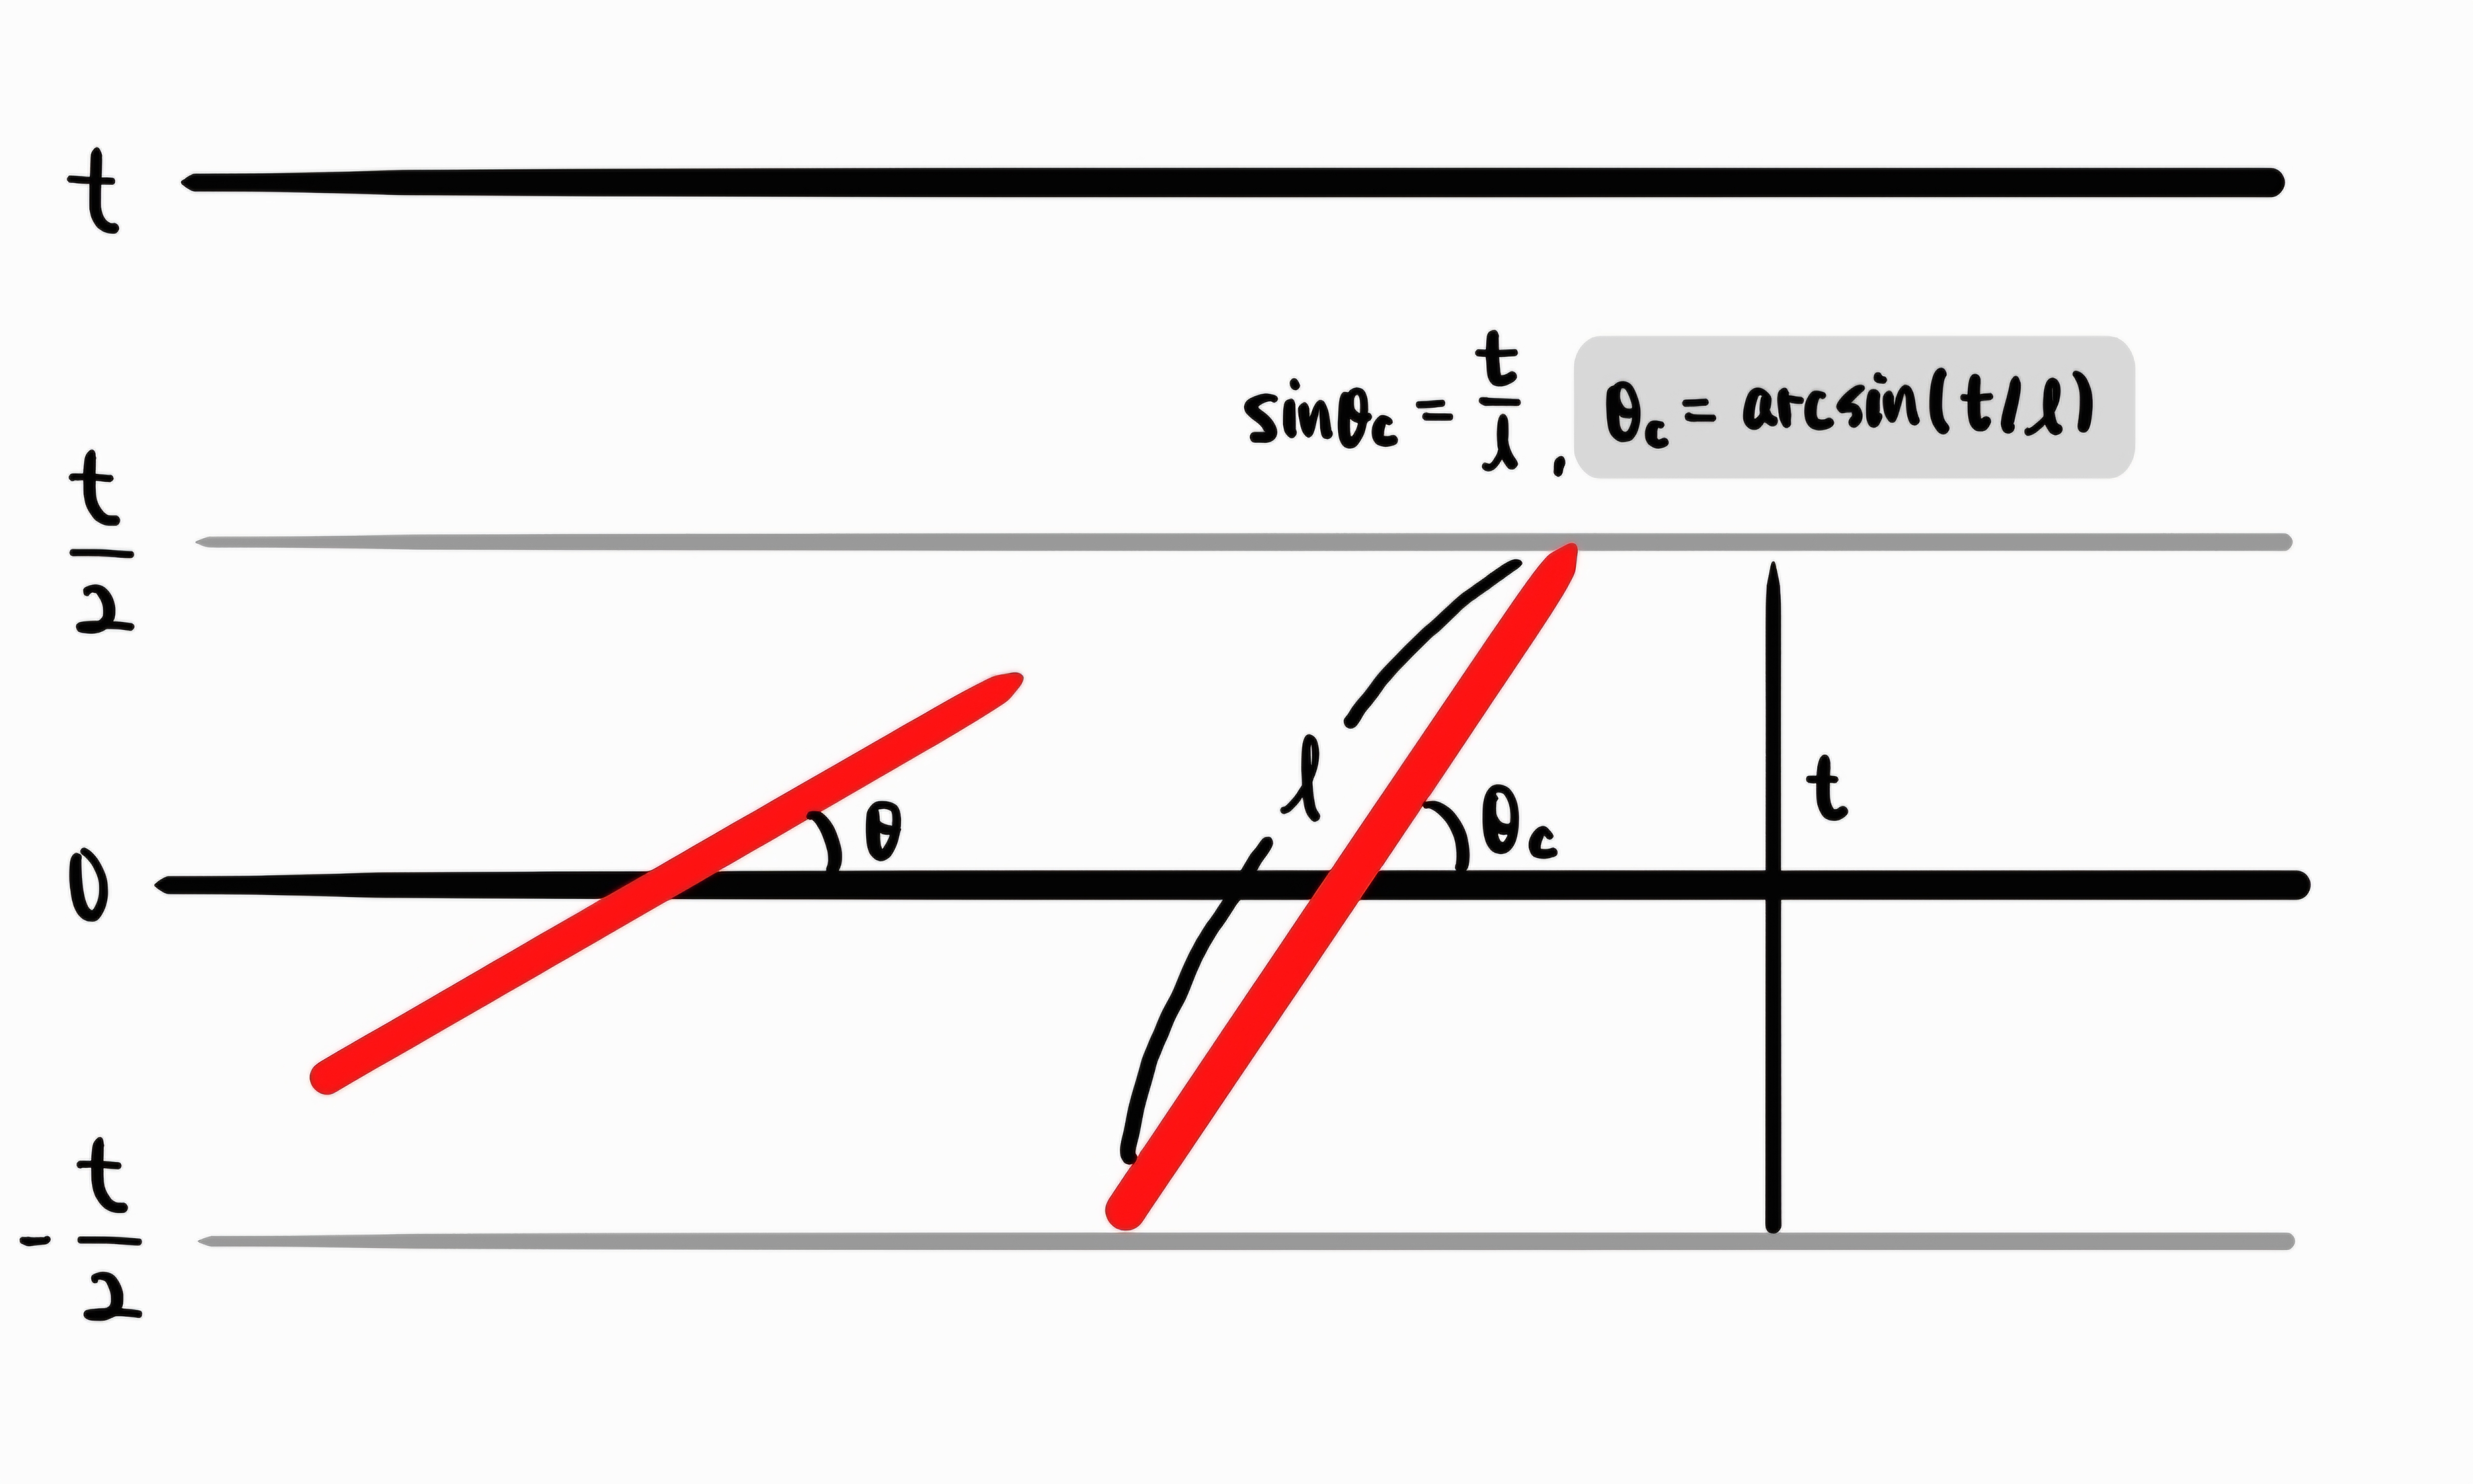 t
sinθc = t/l , θc = arcsin(t/l)
t/2
l
θ
θc
t
0
-t/2